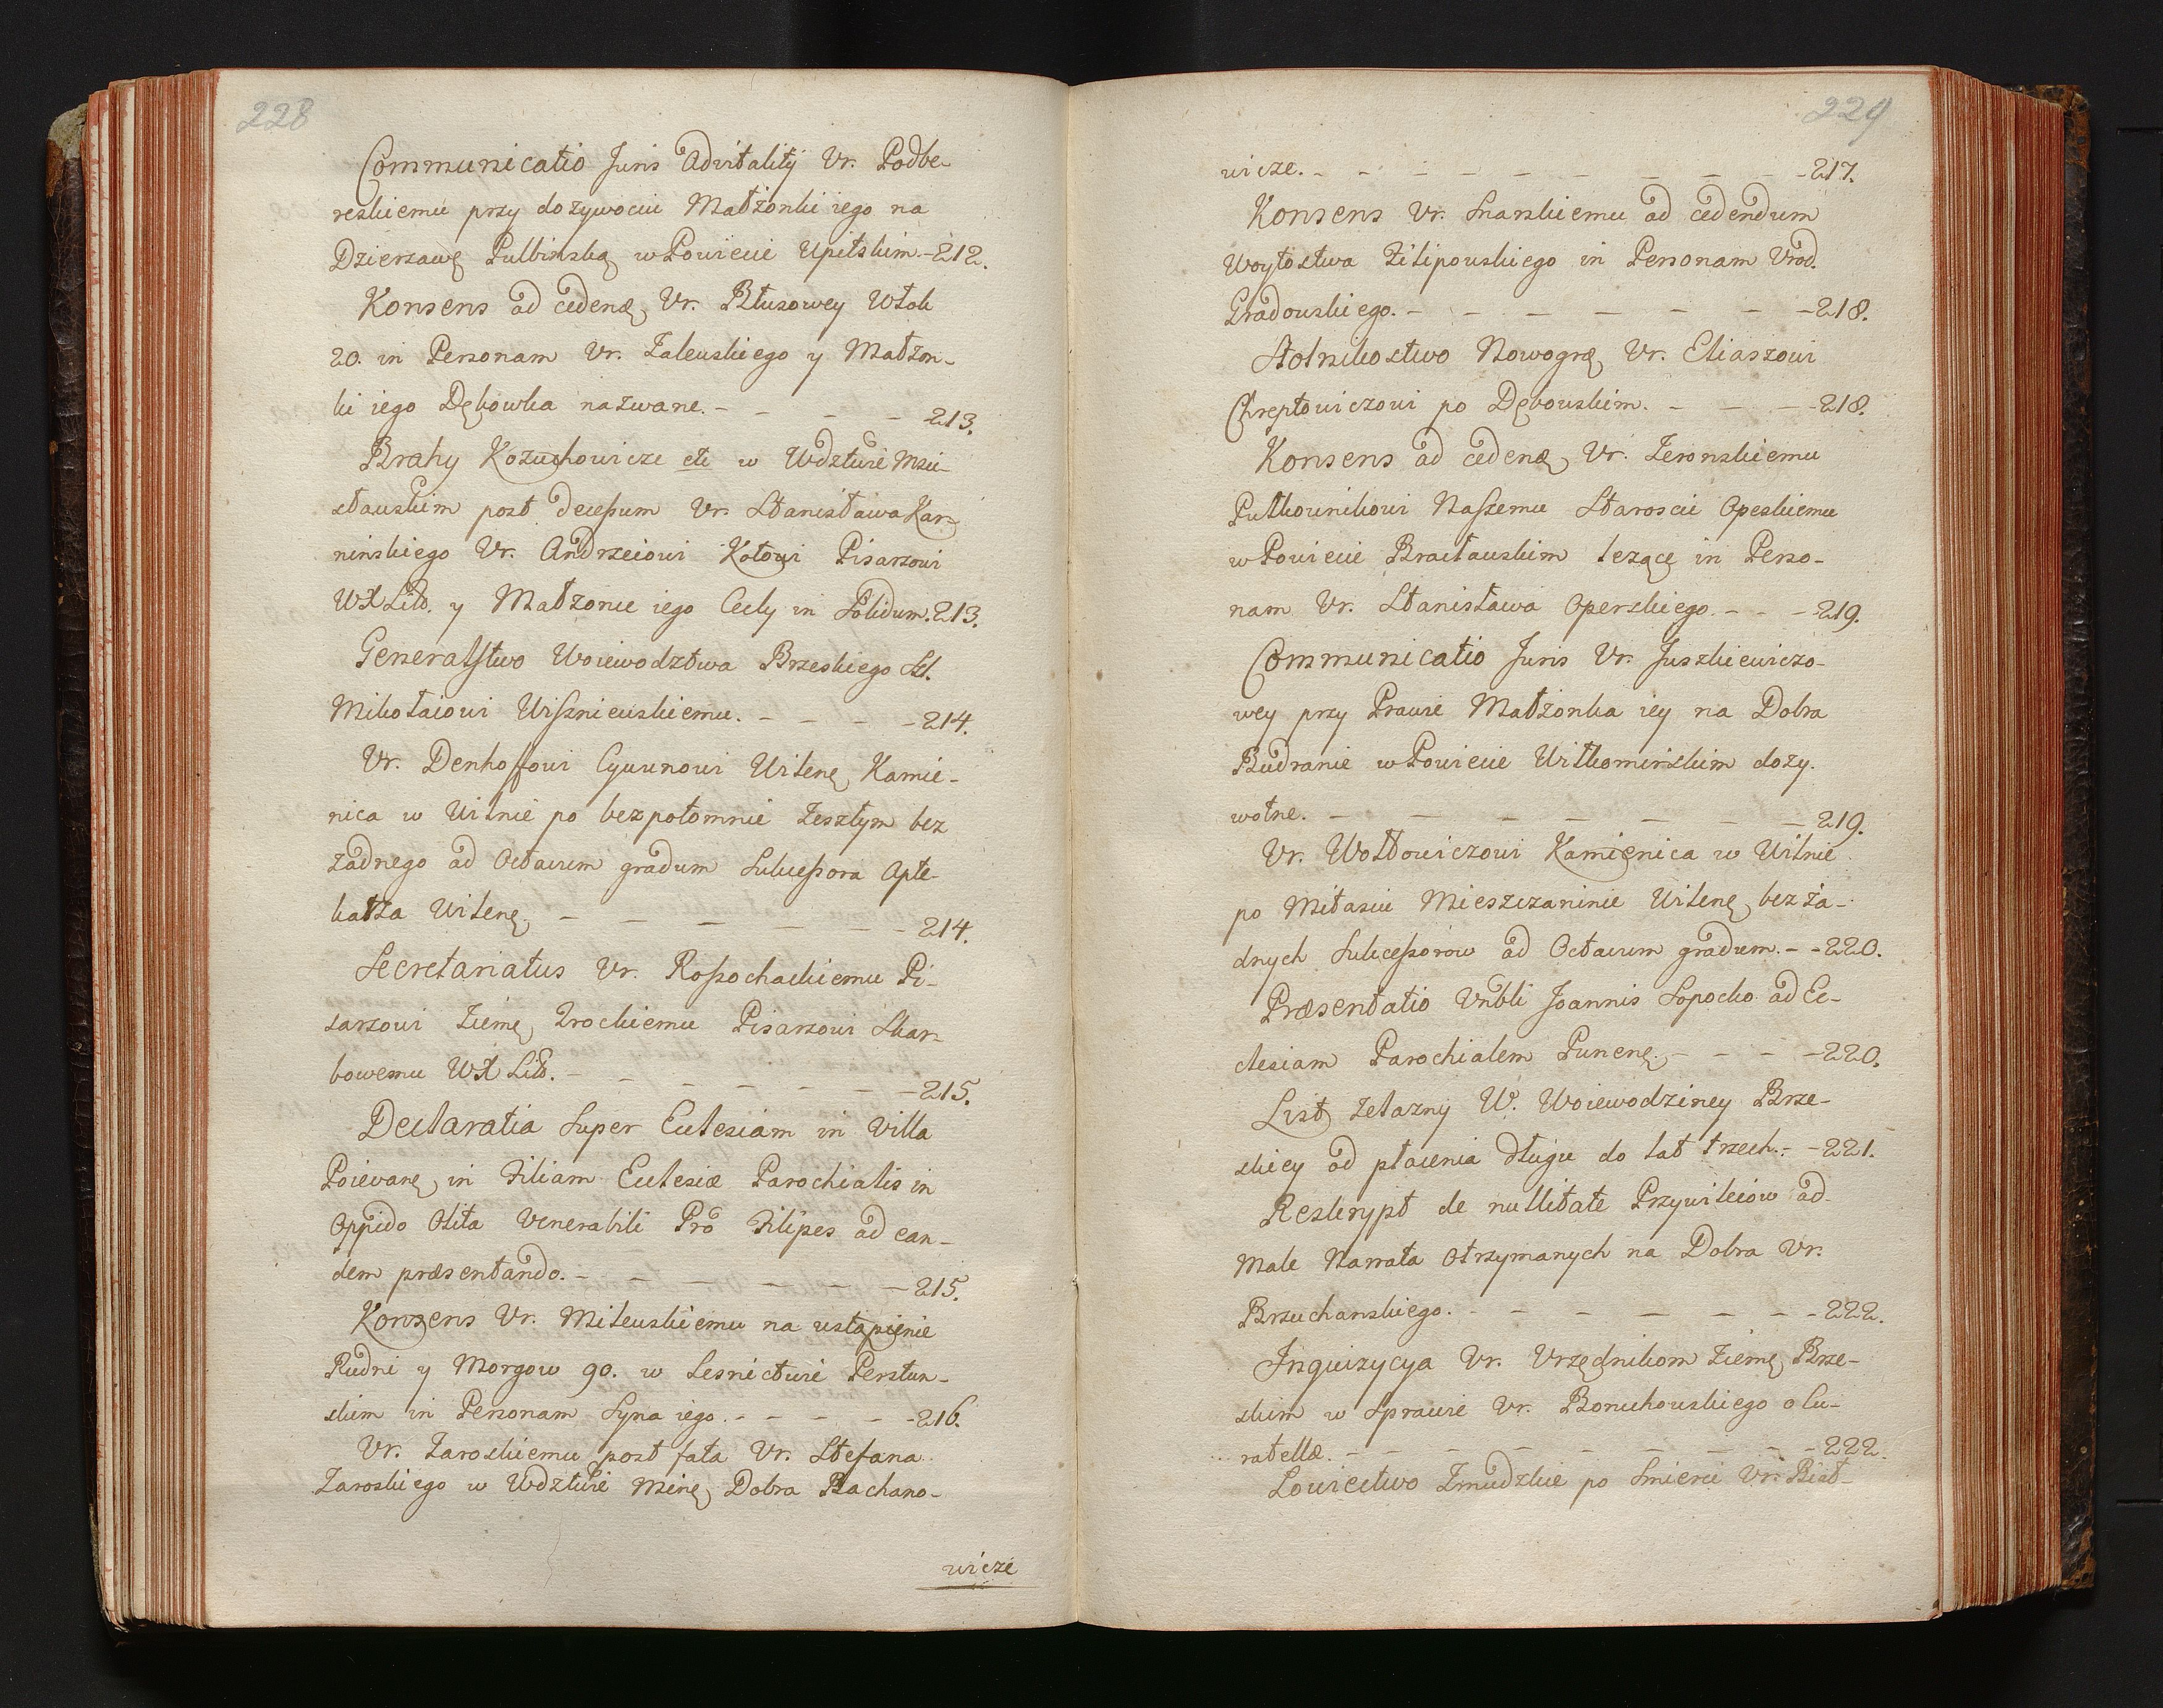 228
Communicatio Juris Advitalitÿ Vr. Podbe-
reskiemu przy dozywociu Małżonki iego na
Dzierzawę Pulbinską w Powiecie Upitskim. - 212.
Konsens ad cedend. Vr. Błusowey Włok
20. in Personam Vr. Zaleuskiego y Małżon-
ki iego Dębowka nazwane. - - - - 213.
Brahy Kozuchowicze etc w Wdztwie Msci-
sławskim post decessum Vr. Stanisława Kar-
nińskiego Vr. Andrzeiowi Kotowi Pisarzowi
WXLitt. y Małzonce iego Cecly in Solidum. 213.
Generalstwo Woiewodztwa Brzeskiego Sl.
Mikołaiowi Wiszniewskiemu. - - - - 214.
Vr. Denhoffowi Cywunowi Wilenę Kamie-
nica w Wilnie po bezpotomnie Zeszłym bez
żadnego ad Octavum gradum Sukcessora Apte-
karza Wilenę - - - - - - 214.
Secretariatus Vr. Rossochackiemu Pi-
sarzowi Ziemę Trockiemu Pisarzowi Skar-
bowemu WX Litt. - - - - - - 215.
Declaratia Super Eclesiam in Villa
Poievanę in Filiam Eclesiæ Parochialis in
Oppido Olita Venerabili Pro Filipes ad ean-
dem præsentando. - - - - - - 215.
Konsens Vr. Milewskiemu na ustąpienie
Rudni y Morgow 90. w Lesnictwie Perstun-
skim in Personam Syna iego. - - - - 216.
Vr. Zaroskiemu post fata Vr. Stefana
Zaroskiego w Wdztwie Minę Dobra Bachano-
wicze
229
wicze. - - - - - - - - - 217.
Konsens Vr. Snarskiemu ad cedendum
Woytostwa Filipowskiego in Personam Vrod.
Gradowskiego. - - - - - - - 218.
Stolnikostwo Nowogrę Vr. Eliaszowi
Chreptowiczowi po Dębowskim. - - - 218.
Konsens ad cedenę Vr. Zeronskiemu
Pułkownikowi Naszemu Staroscie Opeskiemu
w Powiecie Bracławskim lezące in Perso-
nam Vr. Stanisława Operskiego. - - - 219.
Communicatio Juris Vr. Juszkiewiczo-
wey przy Prawie Małżonka iey na Dobra
Budranie w Powiecie Wiłkomirskim dozy.
wotne. - - - - - - - 219.
Vr. Wołłowiczowi Kamienica w Wilnie
po Miłasiu Mieszczaninie Wilenę bez ża-
dnych Sukcessorow ad Octavum gradum. - - 220.
Præsentatio Vnbli Joannis Sopocko ad Ec-
clesiam Parochialem Punenę. - - - 220.
List Zelazny W. Woiewodziney Brze-
skiey od płacenia długu do lat trzech. - - 221.
Reskrypt de nullitate Przywileiow ad
Male Narrata Otrzymanych na Dobra Vr.
Brzuchanskiego. - - - - - - 222.
Inquizycya Vr. Vrzędnikom Ziemę Brze-
skim w Sprawie Vr. Boruchowskiego o Cu-
ratellæ. - - - - - - - - 222.
Łowcetwo Zmudzkie po Smierci Vr. Biał-